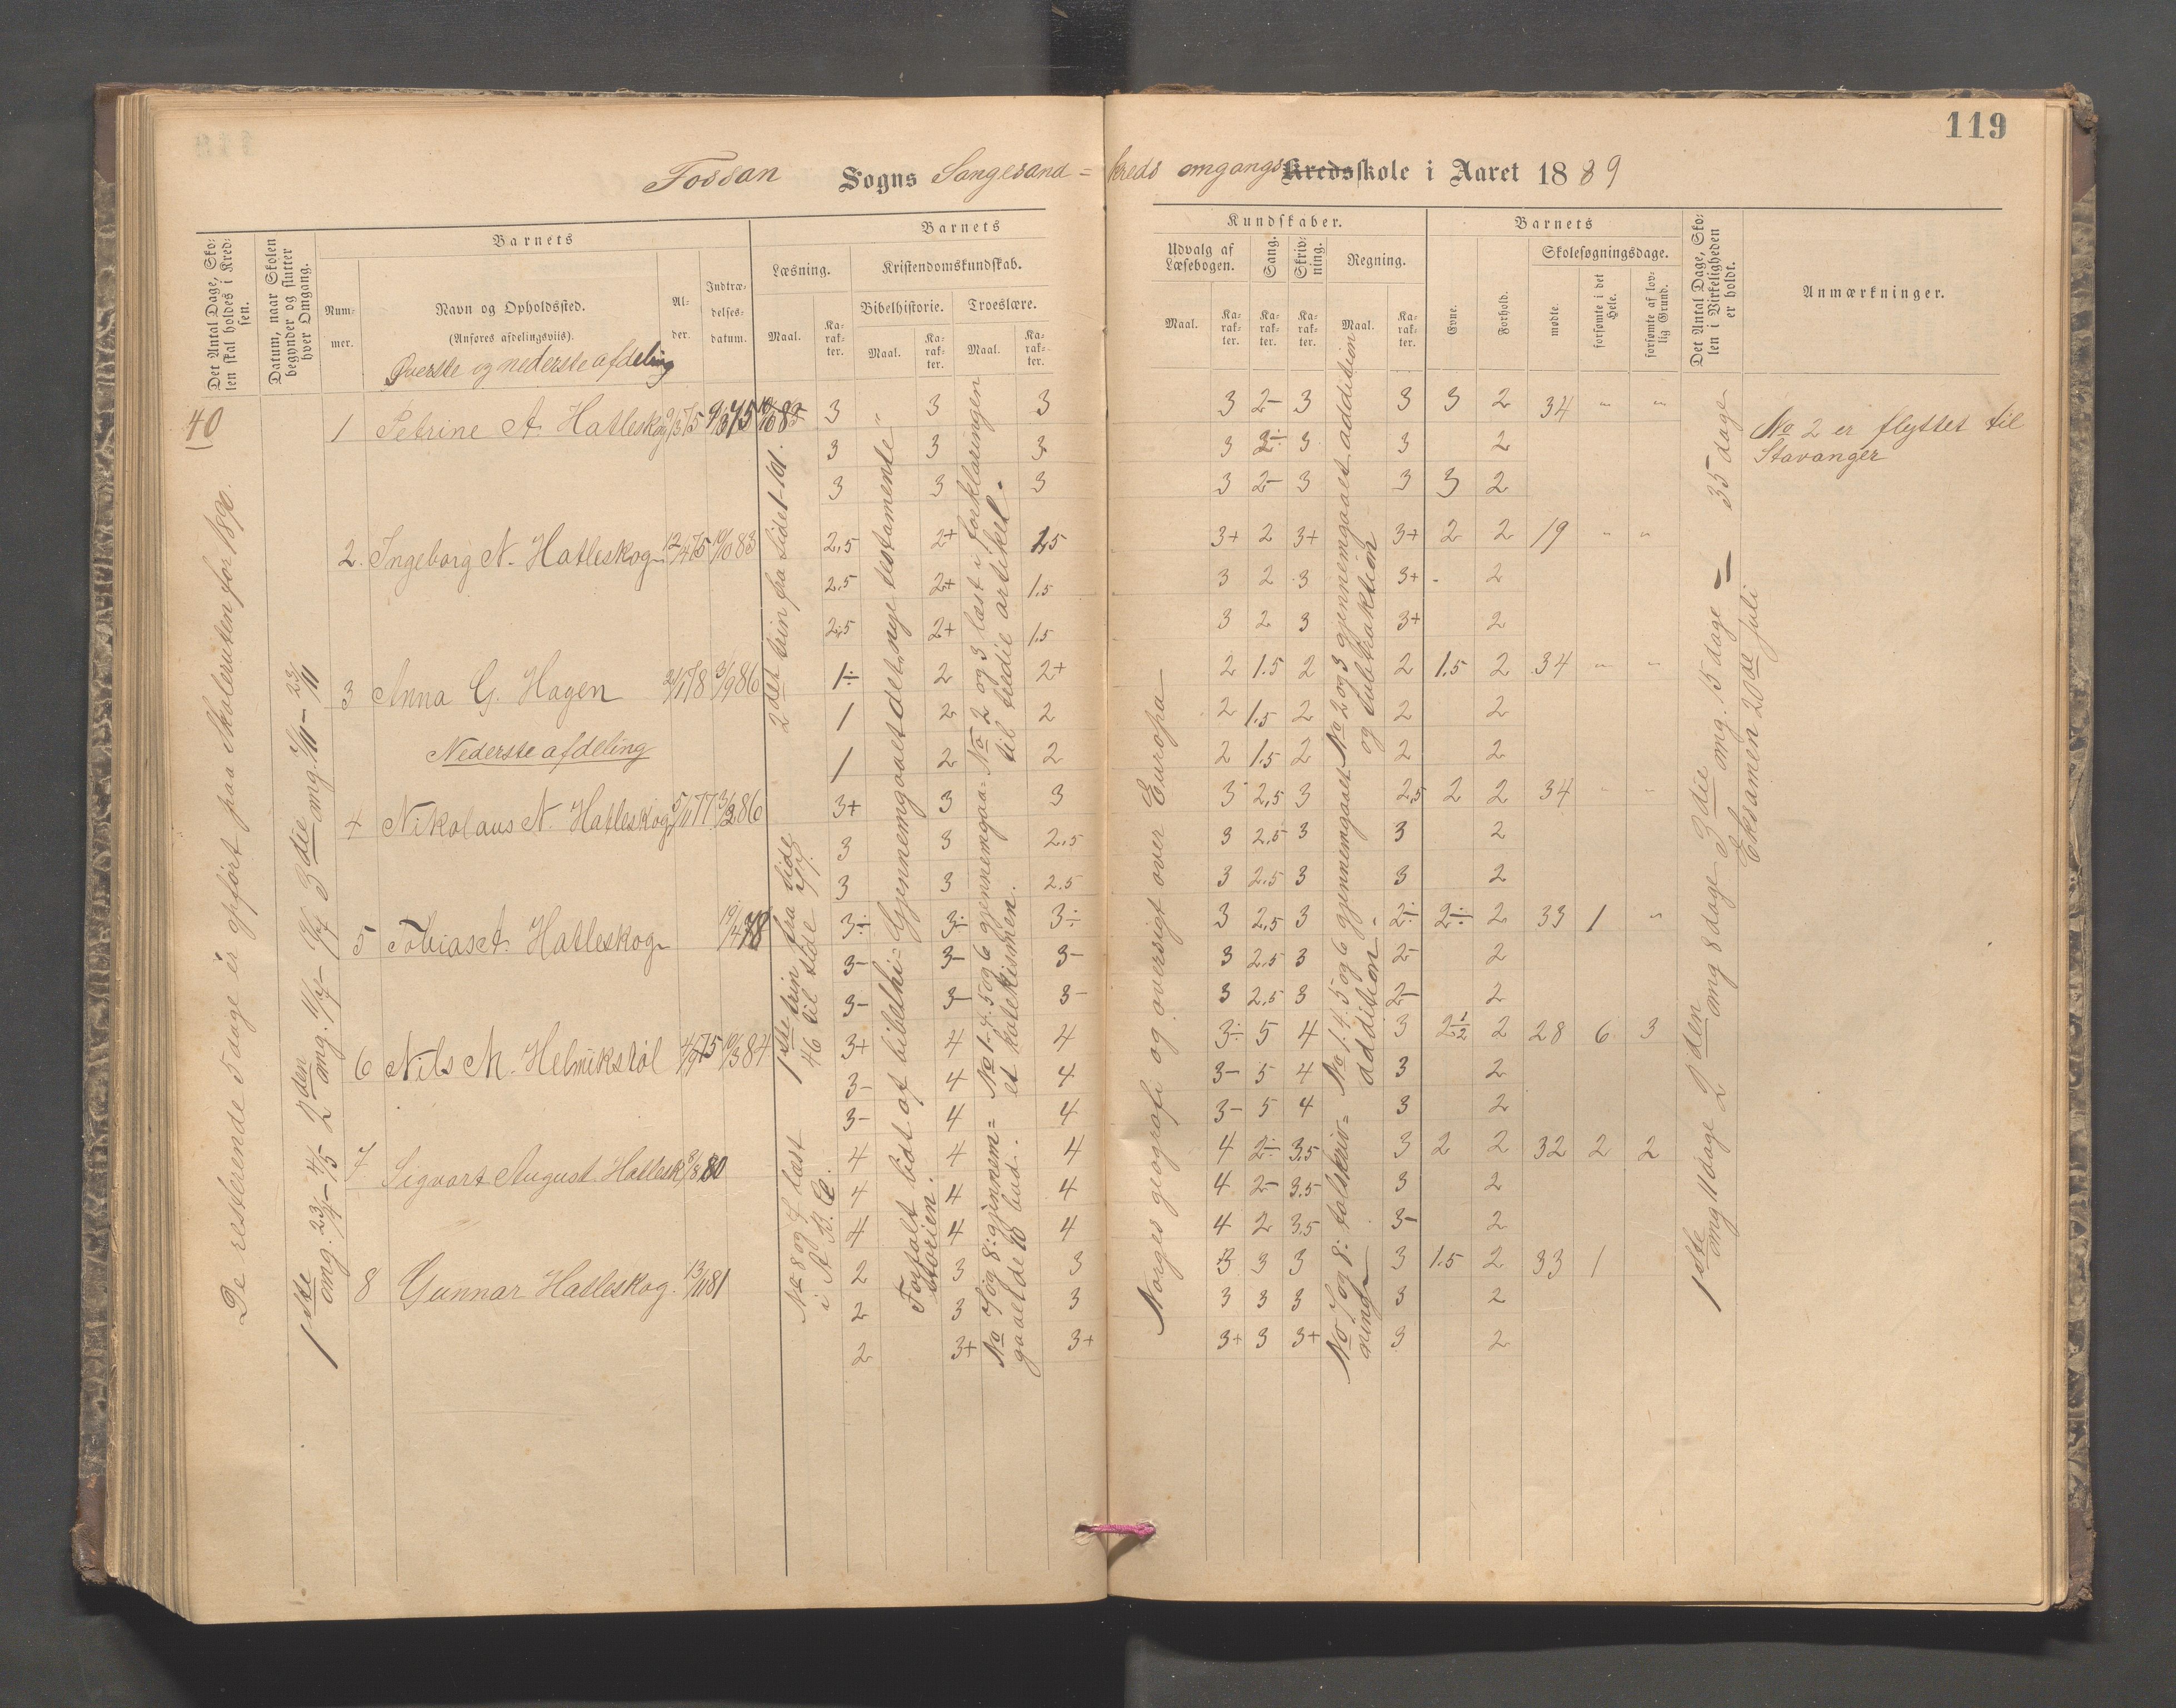 119
Fossan Sogns Songesand = kreds omgangs Kredsskole i Aaret 1889
Det Antal Dage, Skolen skal holdes i Kredsen.
Datum, naar Skolen begynder og slutter hver Omgang.
Barnets
Nummer.
Navn og Opholdssted.
(Anføres afdelingsviis).
Øverste og nederste afdeling
Alder.
Indtrædelsesdatum.
Barnets Kundskaber.
Læsning.
Maal.
Karakter.
Kristendomskundskab.
Bibelhistorie.
Maal.
Karakter.
Troeslære.
Maal.
Karakter.
Udvalg af Læsebogen.
Maal.
Karakter.
Sang.
Karakter.
Skrivning.
Karakter.
Regning.
Maal.
Karakter.
Barnets
Evne.
Forhold.
Skolesøgningsdage.
mødte.
forsømte i det Hele.
forsømte af lovlig Grund.
Det Antal Dage, Skolen i Virkeligheden er holdt.
Anmærkninger.
40
De resterende 5 dage er opført paa Skoleruten for 1890.
1ste omg. 23/4 - 4/5 2den omg. 11/7 - 19/7 3die omg. 7/11 - 23/11
1 Petrine A. Hatleskog 3 " 3 3 3 2- 3 3 3 2 34 " "
3 3 3 3 2- 3 3 2
3 3 3 3 2- 3 3 3 2
2. Ingeborg N. Hatleskog 12/4 75 10/10 83 2,5 2+ 1,5 3+ 2 3+ 3+ 2 2 19 " "
2.5 2+ 1.5 3 2 3 3+ - 2
2,5 2+ 1.5 3 2 3 3+ 2
3 Anna G. Hagen 3/9 86 1÷ 2 2+ 2 1.5 2 2 1.5 2 34 " "
1 2 2 2 1.5 2 2 2
1 2 2 2 1.5 2 2 2
Nederste afdeling
4 Nikolaus N. Hatleskog 5/11 77 3/3 86 3+ 3 3 3 2,5 3 2,5 2 2 34 " "
3 3 2.5 3 2.5 3 3 2
3 3 2.5 3 2.5 3 3 2
5 Tobias A. Hatleskog 19/4 78 3÷ 3÷ 3÷ 3 2,5 3 2÷ 2÷ 2 33 1 "
3- 3- 3- 3 2.5 3 2- 2
3- 3- 3- 3 2,5 3 2- 2
6 Nils M. Helmikstøl 4/9 75 10/3 84 3+ 4 4 3÷ 5 4 3 2½ 2 28 6 3
3- 4 4 3- 5 4 3 2
3- 4 4 3- 5 4 3 2
7 Sigvart August Hatlesk 8/8 80 4 4 4 4 2÷ 3,5 3 2 2 32 2 2
4 4 4 4 2- 3.5 3 2
4 4 4 4 2 3.5 3- 2
8 Gunnar Hatleskog. 13/11 81 2 3 3 3 3 3 3 1.5 2 33 1
2 3 3 3 3 3 3 2
2 3+ 3+ 3+ 3 3+ 3 2
2det trin fra side 1-101.
1ste trin fra side 46 til side
No 8 og 7 læst i A. B. C.
Gjennemgaaet det nye testamente
Fortalt lidt af bibelhistorien.
No 2 og 3 læst i forklaringen til tredie artikel.
No 1. 4. 5 og 6 gjennemgaaet katekismen.
No 7 og 8: gjennemgaaet de 10 bud.
Norges geografi og oversigt over Europa
No 2 og 3 gjennemgaaet addition og subtraktion
No 1. 4. 5 og 6 gjennemgaaet addition.
No 7 og 8: talskrivning
1ste omg 11 dage 2den omg 8 dage 3die omg. 15 dage = 35 dage
Eksamen 20de juli
No 2 er flyttet til
Stavanger